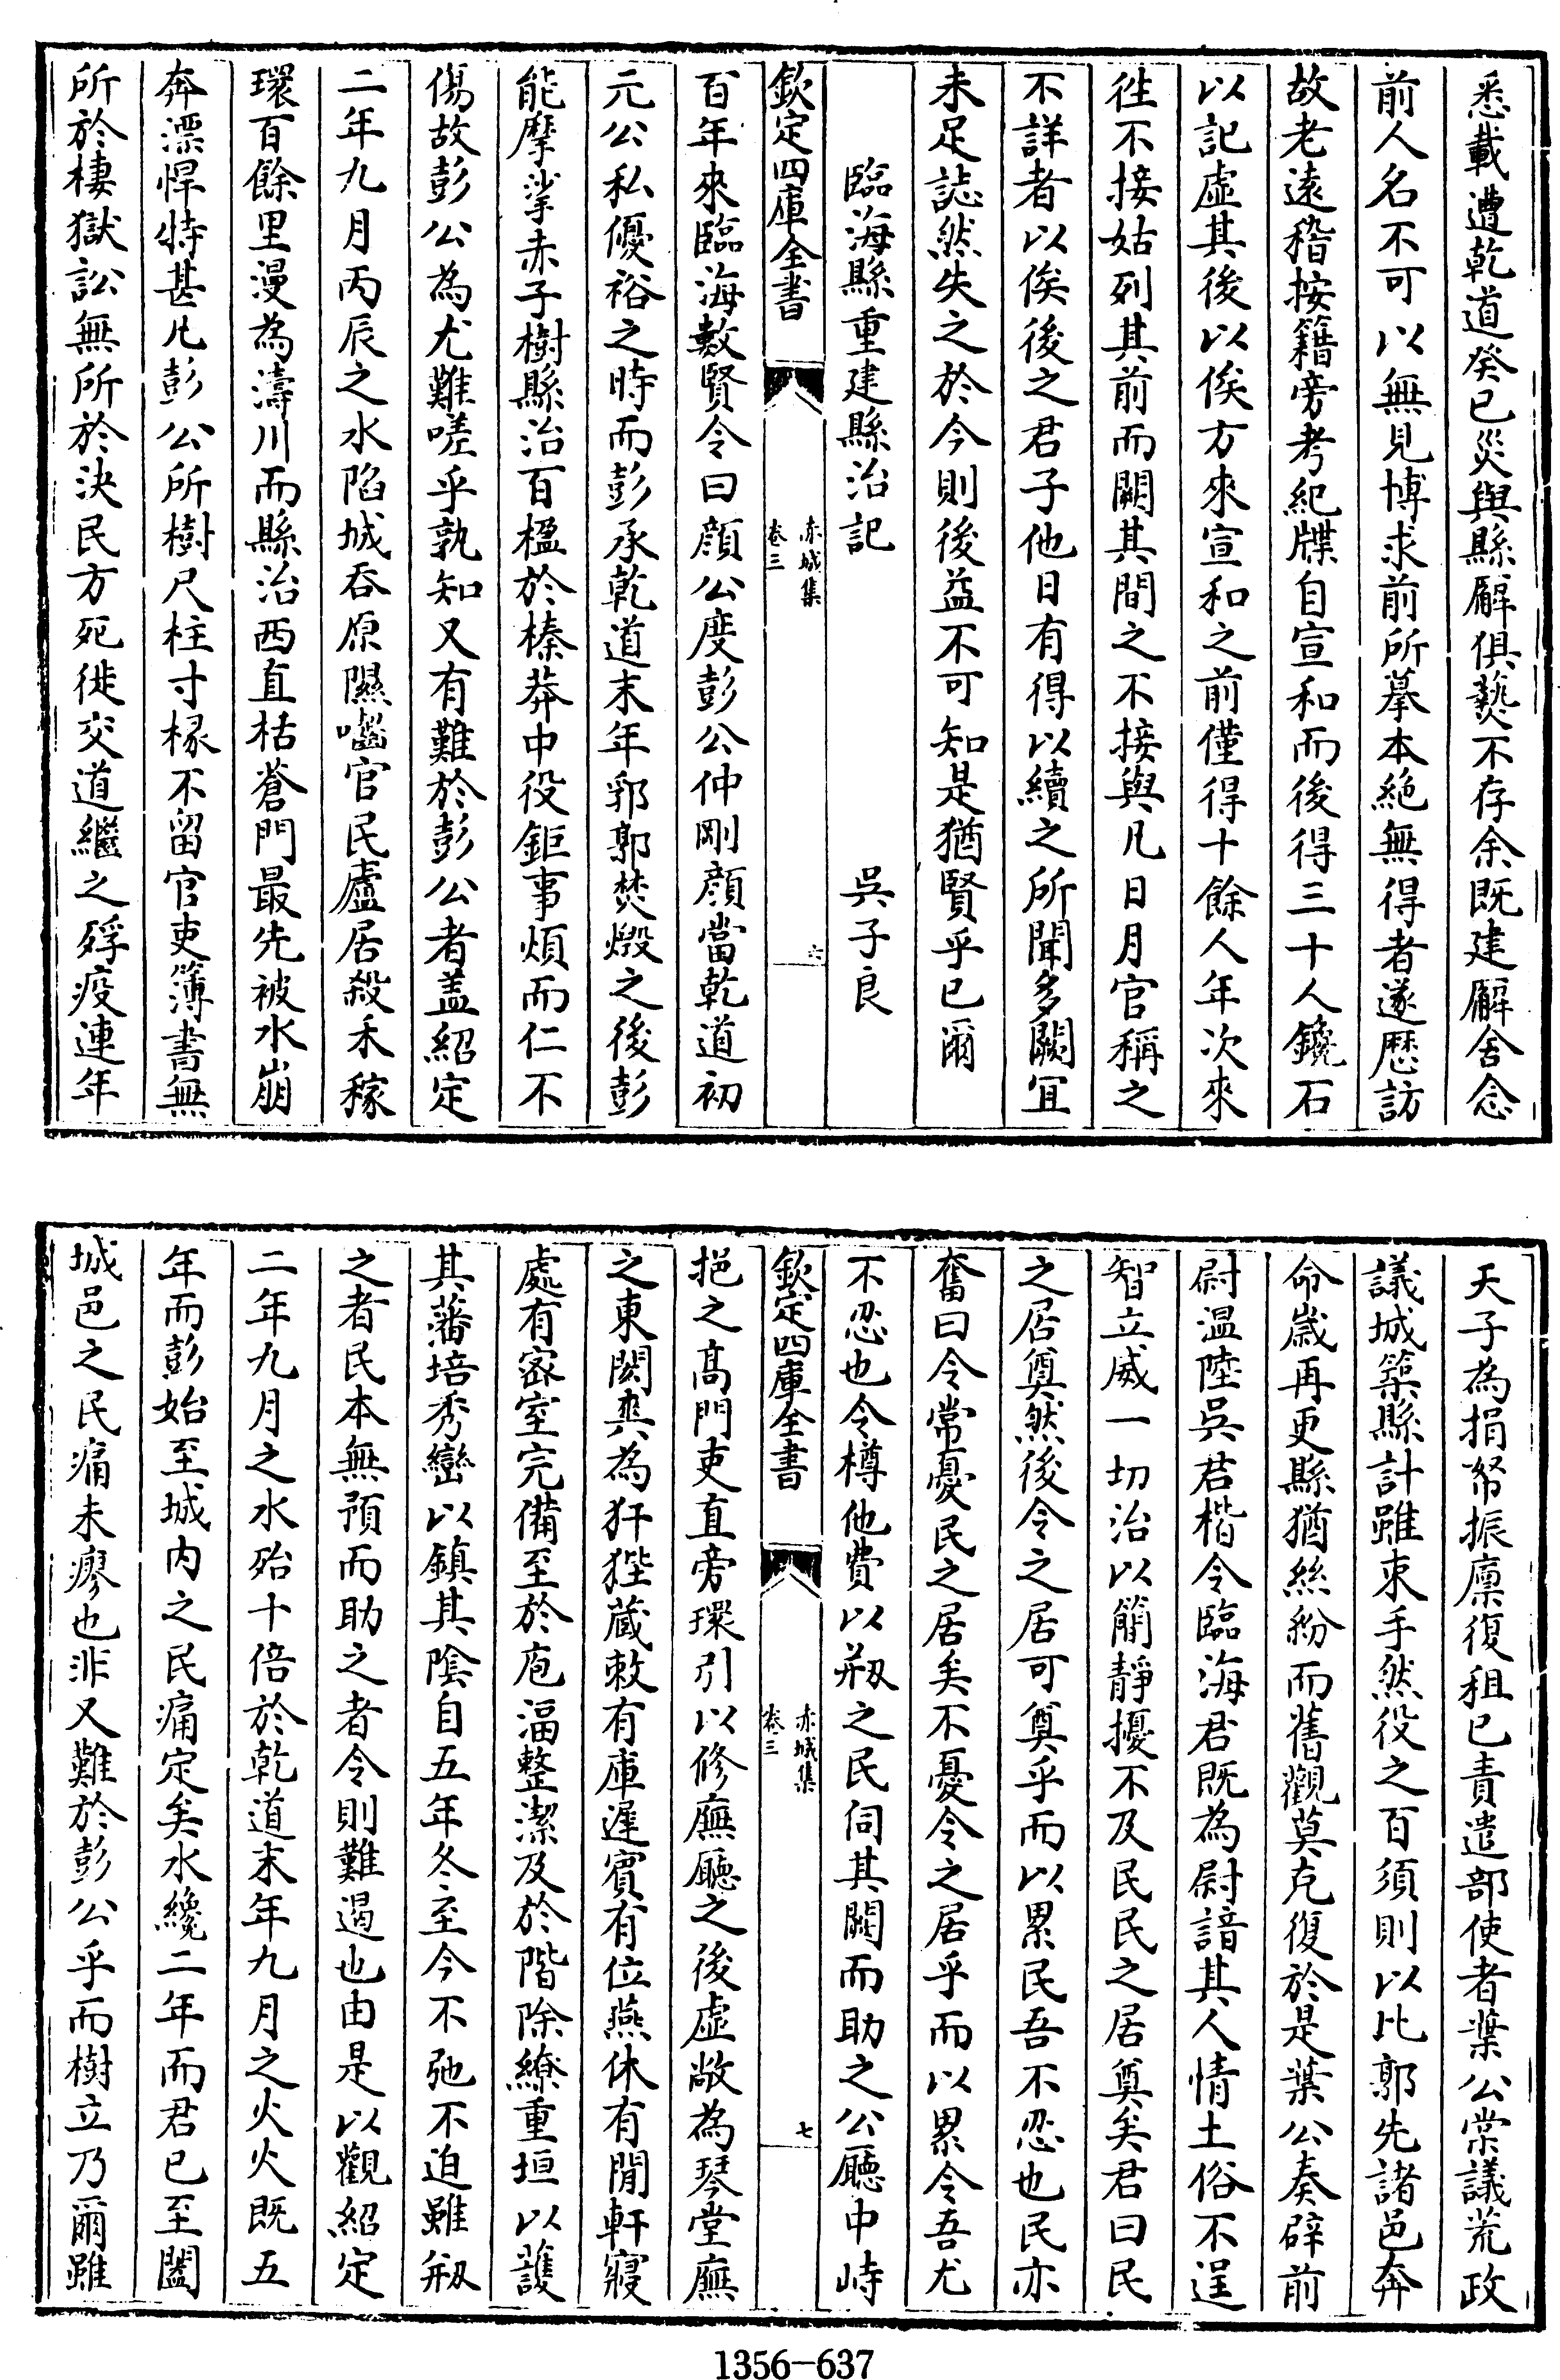 悉載遭乾道癸巳災與縣廨俱爇不存余既建廨舍念
前人名不可以無見博求前所摹本絶無得者遂歴訪
故老遠稽按籍旁考紀牒自宣和而後得三十人鑱石
以記虚其後以俟方來宣和之前僅得十餘人年次來
徃不接姑列其前而闕其間之不接與凡日月官稱之
不詳者以俟後之君子他日有得以續之所聞多闕宜
未足誌然失之於今則後益不可知是猶賢乎已爾
臨海縣重建縣治記 吳子良
欽定四庫全書 赤城集 卷三 六
百年來臨海數賢令曰顔公度彭公仲剛顔當乾道初
元公私優裕之時而彭承乾道末年郛郭焚燬之後彭
能摩挲赤子樹縣治百楹於榛莽中役鉅事煩而仁不
傷故彭公為尤難嗟乎孰知又有難於彭公者盖紹定
二年九月丙辰之水陷城吞原隰嚙官民廬居殺禾稼
環百餘里漫為濤川而縣治西直栝蒼門最先被水崩
奔漂悍特甚凡彭公所樹尺柱寸椽不留官吏簿書無
所於棲獄訟無所於決民方死徙交道繼之殍疫連年
天子為捐帑振廪復租已責遣部使者葉公棠議荒政
議城築縣計雖束手然役之百須則以比郭先諸邑奔
命歲再更縣猶絲紛而舊觀莫克復於是葉公奏辟前
尉温陸吳君楷令臨海君既為尉諳其人情土俗不逞
智立威一切治以簡靜擾不及民民之居奠矣君曰民
之居奠然後令之居可奠乎而以累民吾不忍也民亦
奮曰令常憂民之居矣不憂令之居乎而以累令吾尤
不忍也令樽他費以剏之民伺其闕而助之公廳中峙
欽定四庫全書 赤城集 卷三 七
挹之髙門吏直旁環引以修廡廳之後虚敞為琴堂廡
之東閎㢤為犴狴蔵敕有庫遲賓有位燕休有閒軒寢
處有宻室完備至於庖湢整潔及於階除繚重垣以護
其藩培秀巒以鎮其陰自五年冬至今不弛不迫雖剏
之者民本無預而助之者令則難遏也由是以觀紹定
二年九月之水殆十倍於乾道末年九月之火火既五
年而彭始至城内之民痛定矣水纔二年而君已至闔
城邑之民痛未瘳也非又難於彭公乎而樹立乃爾雖
1356-637